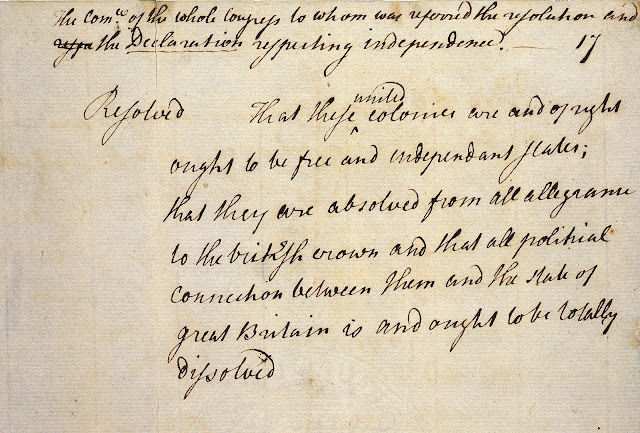 The Com.ee of the whole Congress to whom was referred the resolution and
the Declaration respecting independence. — 17
Resolved That these united colonies are and of right
ought to be free and independant states;
that they are absolved from all allegiance
to the british crown and that all political
connection between them and the state of
great Britain is and ought to be totally
dissolved